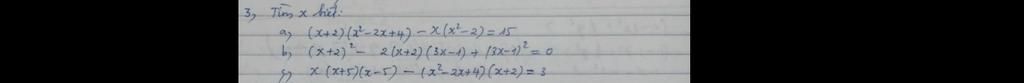 3, Tìm x biết:
a, (x+2)(x²-2x+4) - x(x²-2) = 15
b, (x+2)² - 2(x+2)(3x-1) + (3x-1)² = 0
c, x(x+5)(x-5) - (x²-2x+4)(x+2) = 3